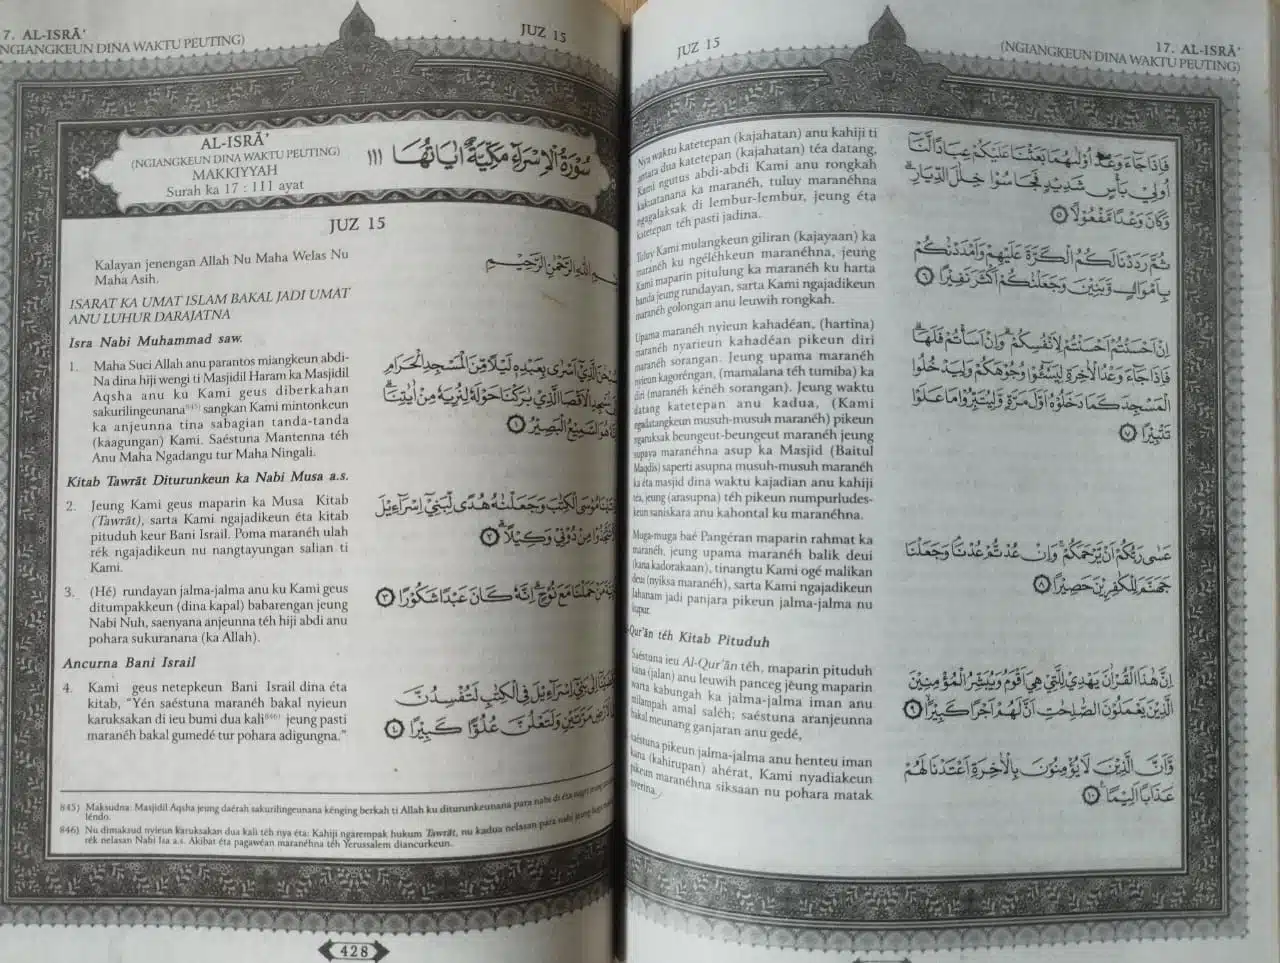 7. AL-ISRĀ’
NGIANGKEUN DINA WAKTU PEUTING)
JUZ 15
AL-ISRĀ’
(NGIANGKEUN DINA WAKTU PEUTING)
MAKKIYYAH
Surah ka 17 : 111 ayat
سُورَةُ الْإِسْرَاءِ مَكِّيَّةٌ اٰيَاتُهَا ١١١
JUZ 15
Kalayan jenengan Allah Nu Maha Welas Nu
Maha Asih.
اللهِ الرَّحْمٰنِ الرَّحِيْمِ
ISARAT KA UMAT ISLAM BAKAL JADI UMAT
ANU LUHUR DARAJATNA
Isra Nabi Muhammad saw.
1. Maha Suci Allah anu parantos miangkeun abdi-
Na dina hiji wengi ti Masjidil Haram ka Masjidil
Aqsha anu ku Kami geus diberkahan
sakurilingeunana⁸⁴⁵⁾ sangkan Kami mintonkeun
ka anjeunna tina sabagian tanda-tanda
(kaagungan) Kami. Saéstuna Mantenna téh
Anu Maha Ngadangu tur Maha Ningali.
الَّذِيْٓ اَسْرٰى بِعَبْدِهٖ لَيْلًا مِّنَ الْمَسْجِدِ الْحَرَامِ
الْاَقْصَا الَّذِيْ بٰرَكْنَا حَوْلَهٗ لِنُرِيَهٗ مِنْ اٰيٰتِنَاۗ
هُوَ السَّمِيْعُ الْبَصِيْرُ ١
Kitab Tawrāt Diturunkeun ka Nabi Musa a.s.
2. Jeung Kami geus maparin ka Musa Kitab
(Tawrāt), sarta Kami ngajadikeun éta kitab
pituduh keur Bani Israil. Poma maranéh ulah
rék ngajadikeun nu nangtayungan salian ti
Kami.
مُوْسَى الْكِتٰبَ وَجَعَلْنٰهُ هُدًى لِّبَنِيْٓ اِسْرَاۤءِيْلَ
مِنْ دُوْنِيْ وَكِيْلًاۗ ٢
3. (Hé) rundayan jalma-jalma anu ku Kami geus
ditumpakkeun (dina kapal) babarengan jeung
Nabi Nuh, saenyana anjeunna téh hiji abdi anu
pohara sukuranana (ka Allah).
مَنْ حَمَلْنَا مَعَ نُوْحٍۗ اِنَّهٗ كَانَ عَبْدًا شَكُوْرًا ٣
Ancurna Bani Israil
4. Kami geus netepkeun Bani Israil dina éta
kitab, “Yén saéstuna maranéh bakal nyieun
karuksakan di ieu bumi dua kali⁸⁴⁶⁾ jeung pasti
maranéh bakal gumedé tur pohara adigungna.”
اِلٰى بَنِيْٓ اِسْرَاۤءِيْلَ فِى الْكِتٰبِ لَتُفْسِدُنَّ
مَرَّتَيْنِ وَلَتَعْلُنَّ عُلُوًّا كَبِيْرًا ٤
845) Maksudna: Masjidil Aqsha jeung daérah sakurilingeunana kénging berkah ti Allah ku diturunkeunana para nabi di éta nagri jeung
léndo.
846) Nu dimaksud nyieun karuksakan dua kali téh nya éta: Kahiji ngarempak hukum Tawrāt, nu kadua nelasan para nabi jeung
rék nelasan Nabi Isa a.s. Akibat éta pagawéan maranéhna téh Yerussalem diancurkeun.
428
JUZ 15
17. AL-ISRĀ’
(NGIANGKEUN DINA WAKTU PEUTING)
Nya waktu katetepan (kajahatan) anu kahiji ti
antara dua katetepan (kajahatan) téa datang,
Kami ngutus abdi-abdi Kami anu rongkah
kakuatanana ka maranéh, tuluy maranéhna
ngagalaksak di lembur-lembur, jeung éta
katetepan téh pasti jadina.
فَاِذَا جَاۤءَ وَعْدُ اُوْلٰىهُمَا بَعَثْنَا عَلَيْكُمْ عِبَادًا لَّنَآ
اُولِيْ بَأْسٍ شَدِيْدٍ فَجَاسُوْا خِلٰلَ الدِّيَارِۗ
وَكَانَ وَعْدًا مَّفْعُوْلًا ٥
Tuluy Kami mulangkeun giliran (kajayaan) ka
maranéh ku ngéléhkeun maranéhna, jeung
Kami maparin pitulung ka maranéh ku harta
banda jeung rundayan, sarta Kami ngajadikeun
maranéh golongan anu leuwih rongkah.
ثُمَّ رَدَدْنَا لَكُمُ الْكَرَّةَ عَلَيْهِمْ وَاَمْدَدْنٰكُمْ
بِاَمْوَالٍ وَّبَنِيْنَ وَجَعَلْنٰكُمْ اَكْثَرَ نَفِيْرًا ٦
Upama maranéh nyieun kahadéan, (hartina)
maranéh nyarieun kahadéan pikeun diri
maranéh sorangan. Jeung upama maranéh
nyieun kagoréngan, (mamalana téh tumiba) ka
diri (maranéh kénéh sorangan). Jeung waktu
datang katetepan anu kadua, (Kami
ngadatangkeun musuh-musuh maranéh) pikeun
ngaruksak beungeut-beungeut maranéh jeung
supaya maranéhna asup ka Masjid (Baitul
Maqdis) saperti asupna musuh-musuh maranéh
ka éta masjid dina waktu kajadian anu kahiji
téa, jeung (arasupna) téh pikeun numpurludes-
keun saniskara anu kahontal ku maranéhna.
اِنْ اَحْسَنْتُمْ اَحْسَنْتُمْ لِاَنْفُسِكُمْۗ وَاِنْ اَسَأْتُمْ فَلَهَاۗ
فَاِذَا جَاۤءَ وَعْدُ الْاٰخِرَةِ لِيَسٗۤـُٔوْا وُجُوْهَكُمْ وَلِيَدْخُلُوا
الْمَسْجِدَ كَمَا دَخَلُوْهُ اَوَّلَ مَرَّةٍ وَّلِيُتَبِّرُوْا مَا عَلَوْا
تَتْبِيْرًا ٧
Muga-muga baé Pangéran maparin rahmat ka
maranéh, jeung upama maranéh balik deui
(kana kadorakaan), tinangtu Kami ogé malikan
deui (nyiksa maranéh), sarta Kami ngajadikeun
Jahanam jadi panjara pikeun jalma-jalma nu
kapur.
عَسٰى رَبُّكُمْ اَنْ يَّرْحَمَكُمْۚ وَاِنْ عُدْتُّمْ عُدْنَاۘ وَجَعَلْنَا
جَهَنَّمَ لِلْكٰفِرِيْنَ حَصِيْرًا ٨
-Qur’ān téh Kitab Pituduh
Saéstuna ieu Al-Qur’ān téh, maparin pituduh
kana (jalan) anu leuwih panceg jeung maparin
warta kabungah ka jalma-jalma iman anu
milampah amal saléh; saéstuna aranjeunna
bakal meunang ganjaran anu gedé,
اِنَّ هٰذَا الْقُرْاٰنَ يَهْدِيْ لِلَّتِيْ هِيَ اَقْوَمُ وَيُبَشِّرُ الْمُؤْمِنِيْنَ
الَّذِيْنَ يَعْمَلُوْنَ الصّٰلِحٰتِ اَنَّ لَهُمْ اَجْرًا كَبِيْرًا ٩
saéstuna pikeun jalma-jalma anu henteu iman
kana (kahirupan) ahérat, Kami nyadiakeun
pikeun maranéhna siksaan nu pohara matak
nyerina.
وَّاَنَّ الَّذِيْنَ لَا يُؤْمِنُوْنَ بِالْاٰخِرَةِ اَعْتَدْنَا لَهُمْ
عَذَابًا اَلِيْمًا ١٠